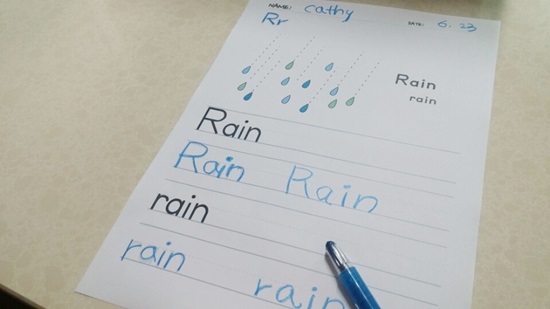 NAME: cathy DATE: 6. 23
Rr
Rain
rain
Rain
Rain Rain
rain
rain rain